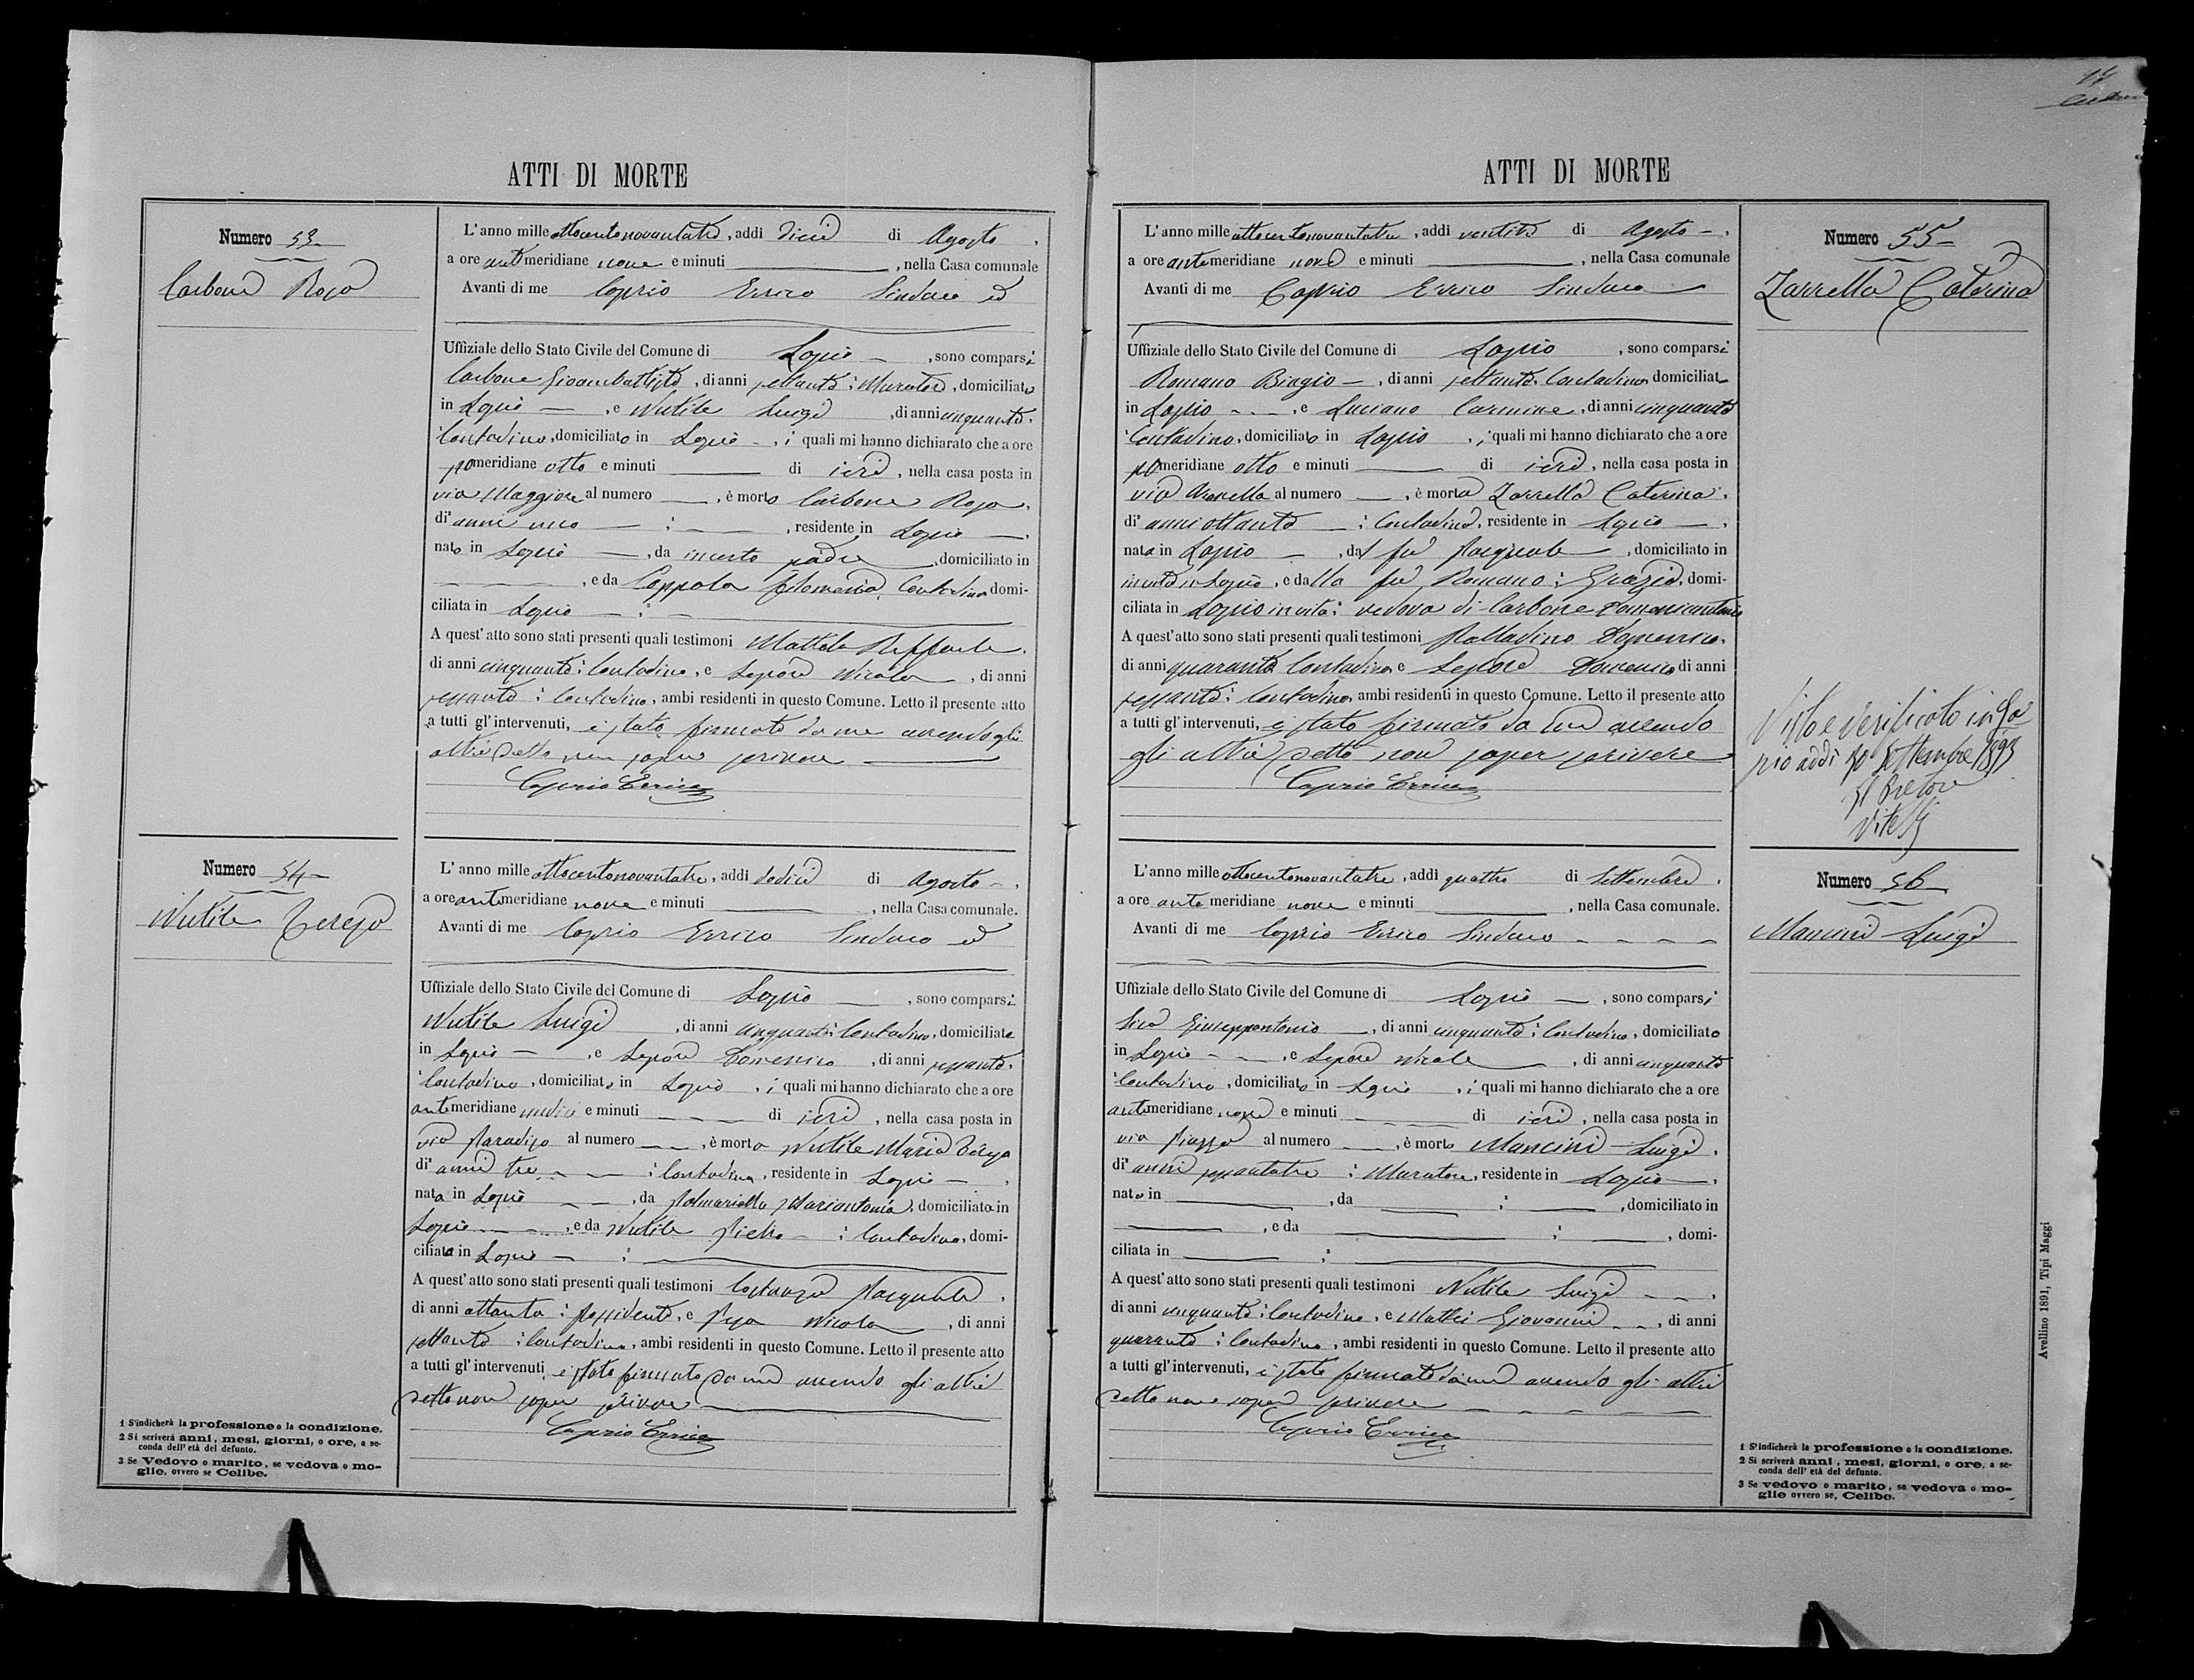 ATTI DI MORTE
Numero 53
Carbone Rosa
L'anno mille ottocentonovantatre, addi dieci di Agosto,
a ore antimeridiane nove e minuti, nella Casa comunale
Avanti di me Caprio Errico Sindaco ed
Uffiziale dello Stato Civile del Comune di Lapio, sono comparsi
Carbone Giovambattista, di anni settanta; Muratore, domiciliato
in Lapio, e Nutile Luigi, di anni cinquanta,
Contadino, domiciliato in Lapio, i quali mi hanno dichiarato che a ore
pomeridiane otto e minuti di ieri, nella casa posta in
via Maggiore al numero, è morto Carbone Rosa,
di anni uno ; , residente in Lapio,
nato in Lapio, da incerto padre, domiciliato in
, e da Coppola Filomena, Contadina domi-
ciliata in Lapio ;
A quest'atto sono stati presenti quali testimoni Raffaele,
di anni cinquanta; Contadino, e Lepore Nicola, di anni
sessanta; Contadino, ambi residenti in questo Comune. Letto il presente atto
a tutti gl'intervenuti, è stato firmato da me avendo gli
altri detto non saper scrivere
Caprio Errico
Numero 54
Nutile Teresa
L'anno mille ottocentonovantatre, addi dodici di Agosto,
a ore antimeridiane nove e minuti, nella Casa comunale.
Avanti di me Caprio Errico Sindaco ed
Uffiziale dello Stato Civile del Comune di Lapio, sono comparsi
Nutile Luigi, di anni cinquanta; Contadino, domiciliato
in Lapio, e Lepore Domenico, di anni sessanta,
Contadino, domiciliato in Lapio, i quali mi hanno dichiarato che a ore
antimeridiane undici e minuti di ieri, nella casa posta in
via Paradiso al numero, è morta Nutile Maria Teresa
di anni tre ; Contadina, residente in Lapio,
nata in Lapio, da Palmariello Mariantonia, domiciliata in
Lapio, e da Nutile Pietro ; Contadino, domi-
ciliata in Lapio ;
A quest'atto sono stati presenti quali testimoni Costanza Pasquale,
di anni ottanta; Possidente, e Pisa Nicola, di anni
settanta; Contadino, ambi residenti in questo Comune. Letto il presente atto
a tutti gl'intervenuti, è stato firmato da me avendo gli altri
detto non saper scrivere
Caprio Errico
1 S'indicherà la professione o la condizione.
2 Si scriverà anni, mesi, giorni, o ore, a se-
conda dell'età del defunto.
3 Se Vedovo o marito, se vedova o mo-
glie, ovvero se Celibe.
17
ATTI DI MORTE
L'anno mille ottocentonovantatre, addi ventitre di Agosto,
a ore antimeridiane nove e minuti, nella Casa comunale
Avanti di me Caprio Errico Sindaco
Uffiziale dello Stato Civile del Comune di Lapio, sono comparsi
Romano Biagio, di anni settanta, Contadino, domiciliato
in Lapio, e Luciano Carmine, di anni cinquanta
Contadino, domiciliato in Lapio, i quali mi hanno dichiarato che a ore
pomeridiane otto e minuti di ieri, nella casa posta in
via al numero, è morta Zarrella Caterina,
di anni ottanta ; Contadina, residente in Lapio,
nata in Lapio, dal fu Pasquale, domiciliato in
in vita in Lapio, e dalla fu Romano; Grazia, domi-
ciliata in Lapio in vita; vedova di Carbone Domenicantonio
A quest'atto sono stati presenti quali testimoni Palladino Domenico,
di anni quaranta Contadino, e Lepore Domenico di anni
sessanta; Contadino, ambi residenti in questo Comune. Letto il presente atto
a tutti gl'intervenuti, è stato firmato da me avendo
gli altri detto non saper scrivere
Caprio Errico
Numero 55
Zarrella Caterina
Visto e verificato in La
pio addì 10 Settembre 1893
Il Pretore
L'anno mille ottocentonovantatre, addi quattro di Settembre,
a ore antimeridiane nove e minuti, nella Casa comunale.
Avanti di me Caprio Errico Sindaco
Uffiziale dello Stato Civile del Comune di Lapio, sono comparsi
Sica Giuseppantonio, di anni cinquanta; Contadino, domiciliato
in Lapio, e Lepore Nicola, di anni cinquanta
Contadino, domiciliato in Lapio, i quali mi hanno dichiarato che a ore
antimeridiane nove e minuti di ieri, nella casa posta in
via Piazza al numero, è morto Mancini Luigi,
di anni sessantatre ; Muratore, residente in Lapio,
nato in , da ; , domiciliato in
, e da ; , domi-
ciliata in ;
A quest'atto sono stati presenti quali testimoni Nutile Luigi,
di anni cinquanta; Contadino, e Mattei Giovanni, di anni
quaranta; Contadino, ambi residenti in questo Comune. Letto il presente atto
a tutti gl'intervenuti, è stato firmato da me avendo gli altri
detto non saper scrivere
Caprio Errico
Numero 56
Mancini Luigi
1 S'indicherà la professione o la condizione.
2 Si scriverà anni, mesi, giorni, o ore, a se-
conda dell'età del defunto.
3 Se vedovo o marito, se vedova o mo-
glie ovvero se, Celibe.
Avellino 1891, Tipi Maggi